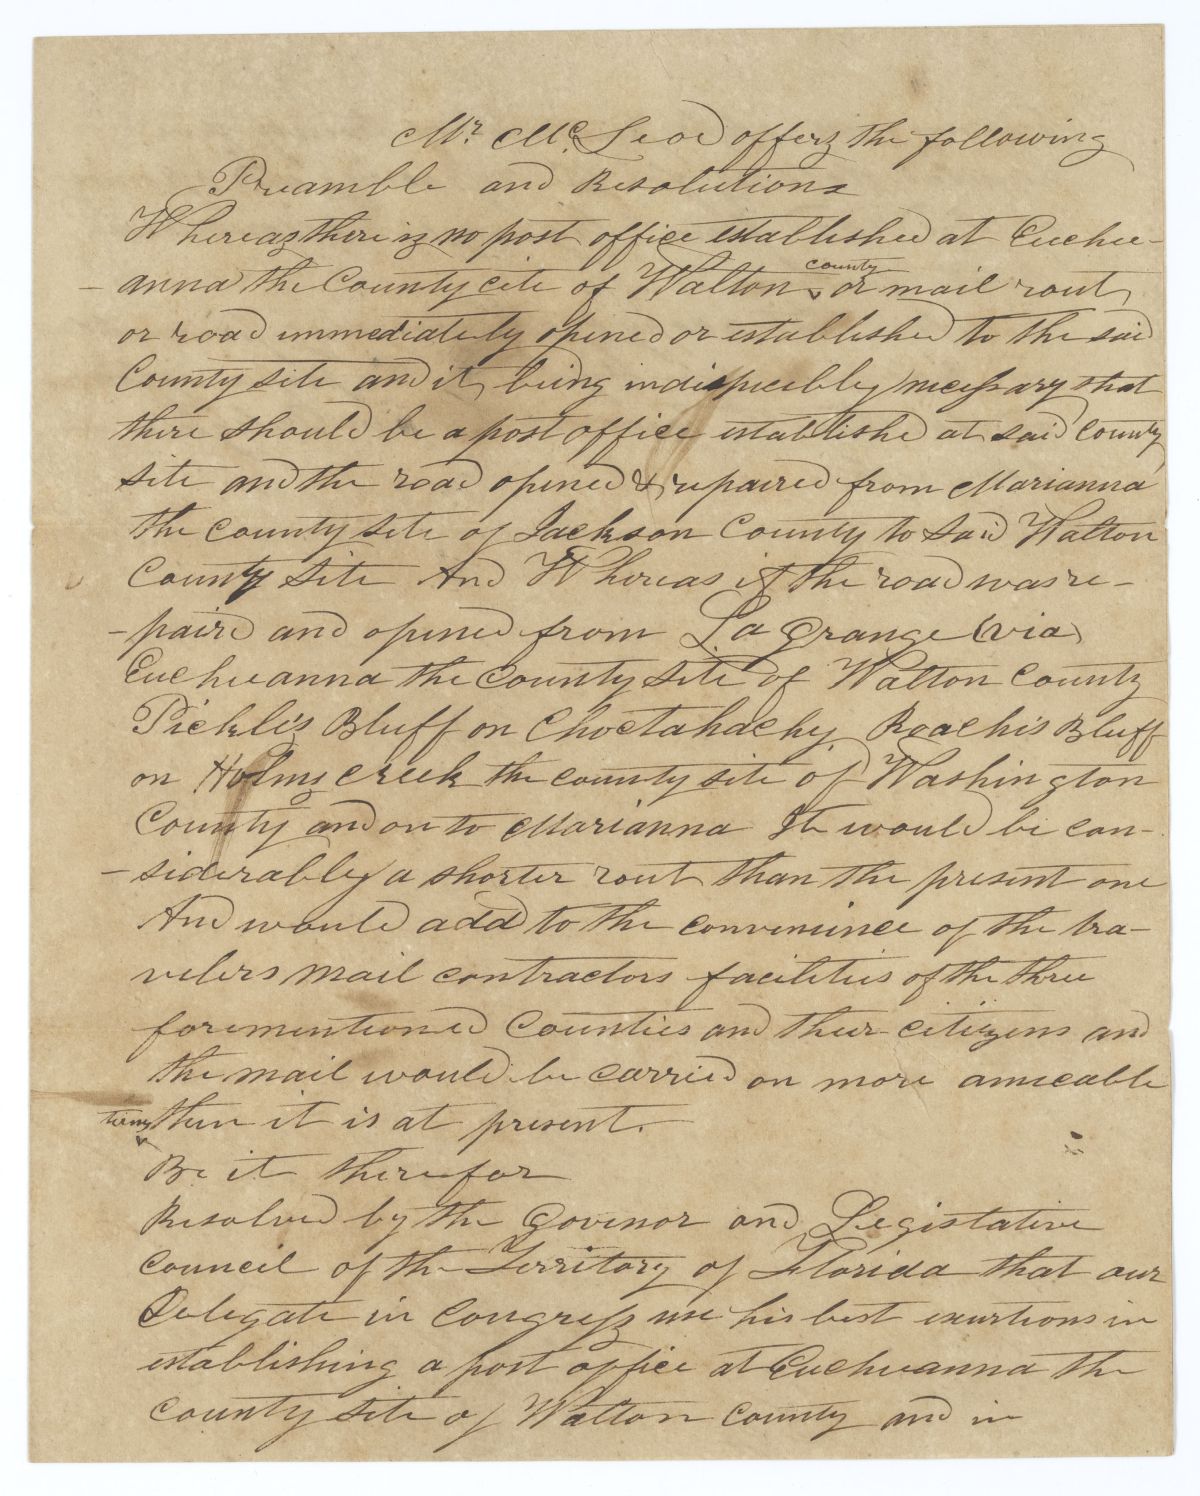 Mr. McLeod offers the following
Preamble and Resolutions
Whereas there is no post office established at Euchee-
-anna the County cite of Walton county or mail rout
or road immediately opened or established to the said
County site and it being indispecibly necessary that
there should be a post office established at said County
site and the road opened & repaired from Marianna
the county site of Jackson County to said Walton
County site And Whereas if the road was re-
-paird and opened from La Grange (via)
Eucheeanna the county site of Walton County
Pickle's Bluff on Choctahachy, Roach's Bluff
on Holms creek the county site of Washington
County and on to Marianna It would be con-
-siderably a shorter rout than the present one
And would add to the convenience of the tra-
velers mail contractors facilities of the three
forementioned Counties and their citizens and
the mail would be carried on more amicable
terms then it is at present.
Be it therefor
Resolved by the Govenor and Legistative
Council of the Territory of Florida that our
Delegate in Congress use his best exertions in
establishing a post office at Eucheeanna the
county site of Walton county and in